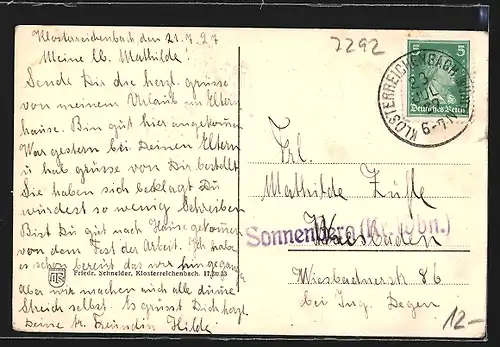 Klosterreichenbach den 21.7.27
Meine lb. Mathilde!
Sende Dir die herzl. grüsse
von meinem Urlaub im Eltern
hause. Bin gut hier angekommen
War gestern bei Deinen Eltern
u hab grüsse von Dir bestellt
Sie haben sich beklagt Du
würdest so wenig schreiben
Bist Du gut nach Hause gekommen
von dem Fest der Arbeit. Ich habe
es schon bereut das wir hingegang.
Aber wir machen auch alle dumme
Streich selbst. Es grüsst Dich herzl.
Deine tr. Freundin Hilde
Friedr. Schneider, Klosterreichenbach.
7292
5
Deutsches Reich
KLOSTERREICHENBACH
6-7N
Frl.
Mathilde
Wiesbaden
Sonnenberg (Kr. Wbn.)
Wiesbadnerstr 86
bei Ing. Degen
12-